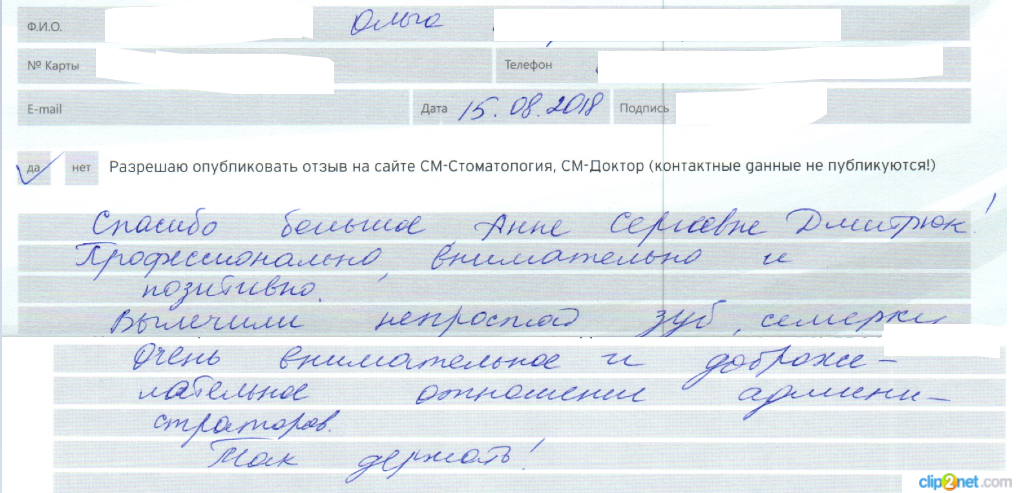 Ф.И.О. Ольга
№ Карты Телефон
E-mail Дата 15.08.2018 Подпись
да нет Разрешаю опубликовать отзыв на сайте СМ-Стоматология, СМ-Доктор (контактные данные не публикуются!)
Спасибо большое Анне Сергеевне Дмитрюк!
Профессионально, внимательно и
позитивно.
Вылечили непростой зуб, семерку
Очень внимательное и доброже-
лательное отношение админи-
страторов.
Так держать!
clip2net.com